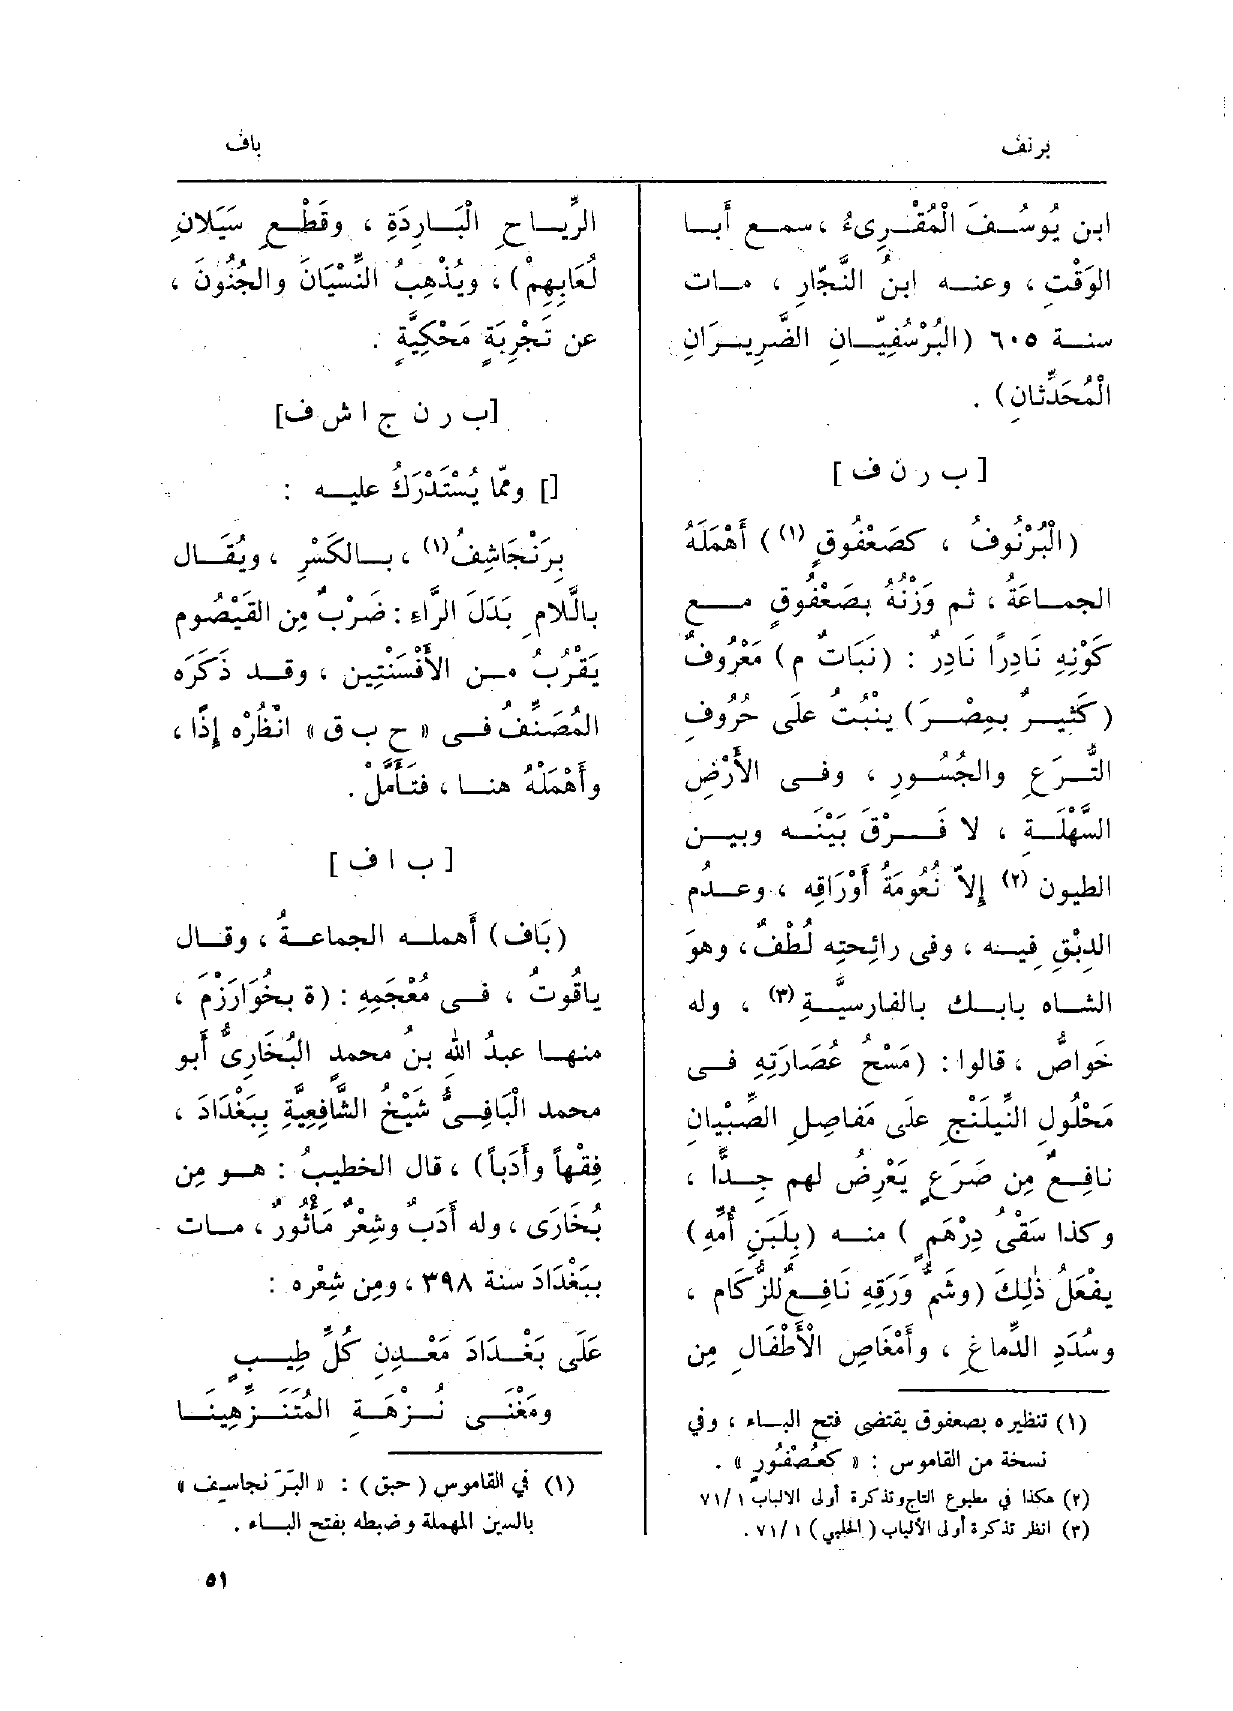 برنف
باف
ابن يُوسُفَ الْمُقْرِىءُ ، سمع أَبا
الوَقْتِ ، وعنه ابنُ النَّجّارِ ، مات
سنة ٦٠٥ (البُرْسُفِيّانِ الضَّرِيرَانِ
الْمُحَدِّثانِ) .
[ ب ر ن ف ]
(الْبُرْنُوفُ ، كصَعْفُوقٍ (١) ) أَهْمَلَهُ
الجماعَةُ ، ثم وَزْنُهُ بصَعْفُوقٍ مع
كَوْنِهِ نَادِرًا نَادِرٌ : (نَبَاتٌ م) مَعْرُوفٌ
(كَثِيرٌ بمِصْرَ) يَنْبُتُ علَى حُرُوفِ
التُّرَعِ والجُسُورِ ، وفى الأَرْضِ
السَّهْلَةِ ، لا فَرْقَ بَيْنَه وبين
الطيون (٢) إِلاّ نُعُومَةُ أَوْرَاقِه ، وعدُم
الدِبْقِ فِيه ، وفى رائِحتِه لُطْفٌ ، وهوَ
الشاه بابك بالفارسيَّةِ (٣) ، وله
خَواصُّ ، قالوا : (مَسْحُ عُصَارَتِهِ فى
مَحْلُولِ النِّيلَنْجِ علَى مَفاصِلِ الصِّبْيانِ
نافِعٌ مِن صَرَعٍ يَعْرِضُ لهم جِدًّا ،
وكذا سَقْىُ دِرْهَمٍ ) منه (بِلَبَنِ أُمِّهِ)
يفْعَلُ ذٰلِكَ (وشَمُّ وَرَقِهِ نَافِعٌ للزُّكَامِ ،
وسُدَدِ الدِّماغِ ، وأَمْغَاصِ الْأَطْفَالِ مِن
(١) تنظيره بصعفوق يقتضى فتح الباء ، وفي
نسخة من القاموس : « كعُصْفُورٍ » .
(٢) هكذا في مطبوع التاج وتذكرة أولى الالباب ١/ ٧١
(٣) انظر تذكرة أولى الألباب ( الحلبي ) ١ / ٧١ .
الرِّيَاحِ الْبَارِدَةِ ، وقَطْعِ سَيَلانِ
لُعَابِهِمْ) ، ويُذْهِبُ النِّسْيَانَ والجُنُونَ ،
عن تَجْرِبَةٍ مَحْكِيَّةٍ .
[ب ر ن ج ا ش ف]
[] وممّا يُسْتَدْرَكُ عليه :
بِرَنْجَاشِفُ (١) ، بالكَسْرِ ، ويُقَال
بالَّلامِ بَدَلَ الرَّاءِ : ضَرْبٌ مِن القَيْصُوم
يَقْرُبُ من الأَفْسَنْتِين ، وقد ذَكَرَه
المُصَنِّفُ فى « ح ب ق » انْظُرْه إِذًا ،
وأَهْمَلَهُ هنا ، فتَأَمَّلْ .
[ ب ا ف ]
(بَاف) أَهمله الجماعةُ ، وقال
ياقُوتُ ، فى مُعْجَمِهِ : (ة بخُوَارَزْمَ ،
منها عبدُ اللهِ بنُ محمدٍ البُخَارِىُّ أَبو
محمد الْبَافِىُّ شَيْخُ الشَّافِعِيَّةِ بِبَغْدَادَ ،
فِقْهاً وأَدَباً) ، قال الخطيبُ : هو مِن
بُخَارَى ، وله أَدَبٌ وشِعْرٌ مَأْثُورٌ ، مات
ببَغْدَادَ سنة ٣٩٨ ، ومِن شِعْرِه :
عَلَى بَغْدَادَ مَعْدِنِ كُلِّ طِيبٍ
ومَغْنَى نُزْهَةِ المُتَنَزِّهِينَا
(١) في القاموس ( حبق ) : « البَرَنجاسيف »
بالسين المهملة وضبطه بفتح الباء .
٥١